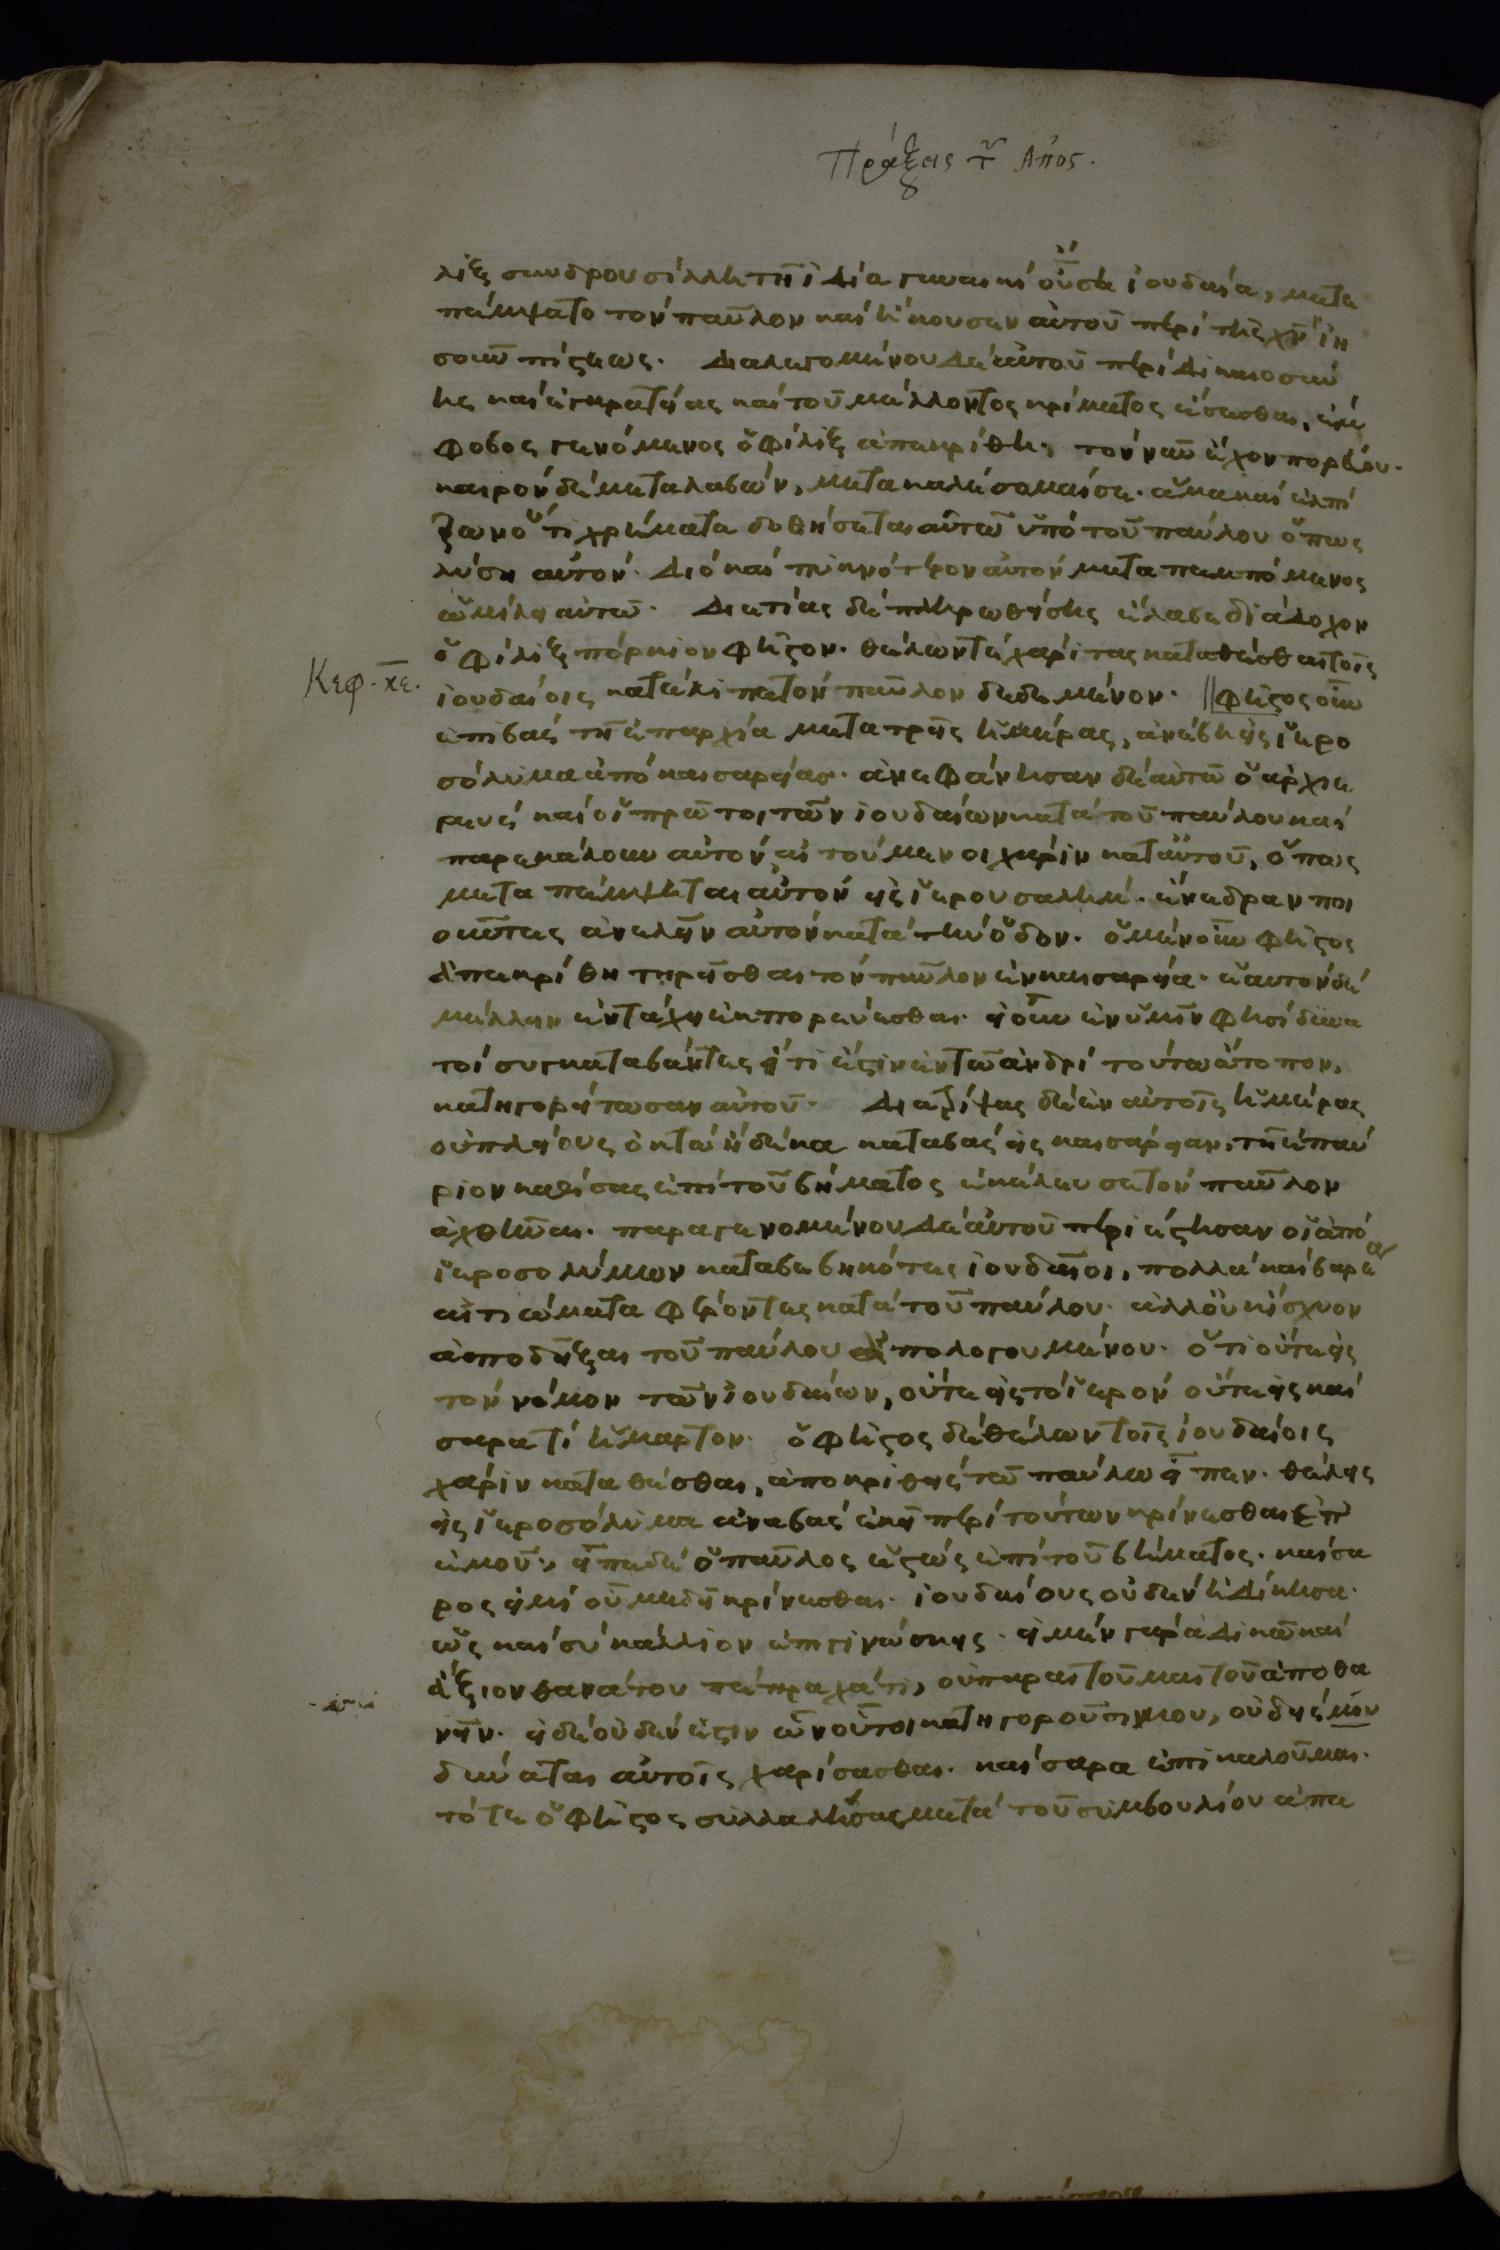 Πράξεις τ Απος.
λιξ συν δρουσίλλη τῆ ἰδία γυναικί οὔση ἰουδαία, μετε
πέμψατο τόν παῦλον καί ἤκουσεν αὐτοῦ περί τῆς χν ιη
σοῦν πίστεως. διαλεγομένου δέ αὐτοῦ περί δικαιοσύν
ης καί ἐγκρατείας καί τοῦ μέλλοντος κρίματος ἔσεσθαι, ἔμ
φοβος γενόμενος ὁ φίλιξ ἀπεκρίθη, τό νῦν ἔχον πορεύου.
καιρόν δέ μεταλαβών, μετακαλέσομαί σε. ἅμα καί ἐλπί
ζων ὅτι χρήματα δοθήσεται αὐτῶ ὑπό τοῦ παύλου ὅπως
λύση αὐτόν. διό καί πυκνότερον αὐτόν μεταπεμπόμενος
ὡμίλει αὐτῶ. διετίας δέ πληρωθείσης ἔλαβε διάδοχον
ὁ φίλιξ πόρκιον φῆστον. θέλων τέ χάριτας καταθέσθαι τοῖς
Κεφ. κε.
ἰουδαίοις κατέλιπε τόν παῦλον δεδεμένον. φῆστος οὖν
ἐπιβάς τῆ ἐπαρχία μετα τρεῖς ἡμέρας, ἀνέβη εἰς ἱερο
σόλυμα ἀπό καισαρείας. ἀνεφάνησαν δέ αὐτῶ ὁ ἀρχιε
ρευς καί οἱ πρῶτοι τῶν ἰουδαίων κατά τοῦ παύλου καί
παρεκάλουν αὐτόν, αἰτούμενοι χάριν κατ αὐτοῦ, ὅπως
μεταπέμψηται αὐτόν εἰς ἱερουσαλήμ. ἐνέδραν ποι
οῦντες ἀνελεῖν αὐτόν κατά τήν ὁδον. ὁ μέν οὖν φῆστος
ἀπεκρίθη τηρεῖσθαι τόν παῦλον ἐν καισαρεία. ἑαυτον δέ
μέλλειν ἐν τάχει ἐκπορεύεσθαι. οἱ οὖν ἐν ὑμῖν φησί δυνα
τοί συγκαταβάντες εἴ τι ἐστιν ἐν τῶ ἀνδρί τούτω ἄτοπον,
κατηγορείτωσαν αὐτοῦ. διατρίψας δέ ἐν αὐτοῖς ἡμέρας
οὐ πλείους ὀκτώ ἤ δέκα καταβάς εἰς καισάρειαν, τῆ ἐπαύ
ριον καθίσας ἐπί τοῦ βήματος ἐκέλευσε τόν παῦλον
ἀχθῆναι. παραγενομένου δέ αὐτοῦ περιέστησαν οἱ ἀπό
ἱεροσολύμων καταβεβηκότες ἰουδαῖοι, πολλά καί βαρέα
αἰτιώματα φέροντες κατά τοῦ παύλου. ἅ οὐκ ἴσχυον
ἀποδεῖξαι τοῦ παύλου ἀπολογουμένου. ὅτι οὔτε εἰς
τόν νόμον τῶν ἰουδαίων, οὔτε εἰς τό ἱερόν οὔτε εἰς καί
σαρα τί ἥμαρτον. ὁ φῆστος δέ θέλων τοῖς ἰουδαίοις
χάριν καταθέσθαι, ἀποκριθείς τῶ παύλω εἶπεν. θέλεις
εἰς ἱεροσόλυμα ἀναβάς ἐκεῖ περί τούτων κρίνεσθαι ἐπ
ἐμοῦ, εἶπε δέ ὁ παῦλος ἑστώς ἐπί τοῦ βήματος. καίσα
ρος εἰμί οὗ με δεῖ κρίνεσθαι. ἰουδαίους οὐδέν ἠδίκησα.
ὡς καί σύ κάλλιον ἐπιγινώσκεις. εἰ μέν γάρ ἀδικῶ καί
ἄξιον θανάτου πέπραχά τι, οὐ παραιτοῦμαι τοῦ ἀποθα
νεῖν. εἰ δέ οὐδέν ἐστιν ὧν οὗτοι κατηγοροῦσι μου, οὐδείς μέ
δύναται αὐτοῖς χαρίσασθαι. καίσαρα ἐπικαλοῦμαι.
τότε ὁ φῆστος συλλαλήσας μετά τοῦ συμβουλίου ἀπε